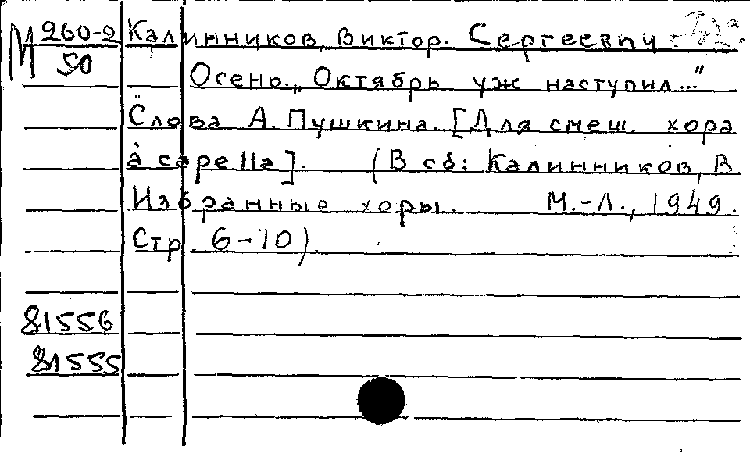 М 260-2 Калинников, Виктор. Сергеевич
50 Осень „Октябрь уж наступил..."
Слова А. Пушкина. [Для смеш. хора
a capella]. (В сб: Калинников, В
Избранные хоры. М.-Л., 1949.
Стр. 6-10)
81556
81555